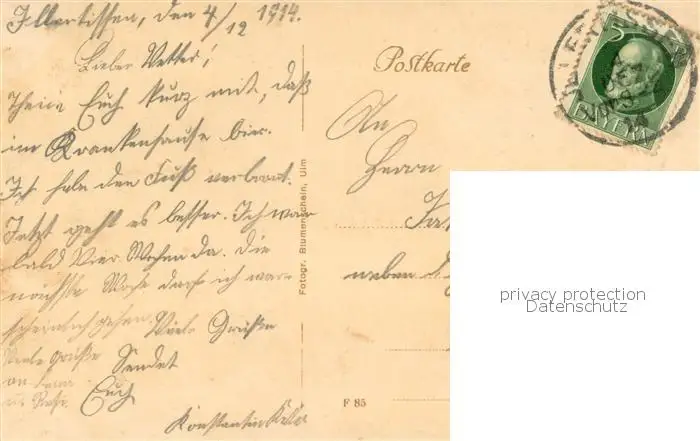 Illertissen, den 4/12 1914.
Lieber Vetter!
Theile Euch kurz mit, daß
im Krankenhause bin.
Ich habe den Fuß verbrannt.
Jetzt geht es besser. Ich war
bald Vier Wochen da. Die
nächste Woche darf ich war-
scheinlich gehen. Viele Grüßen
Viele Grüße Sendet
an
Euch
Konstantin
Postkarte
An
Herrn
neben
Fotogr. Blumenschein, Ulm
F 85
5
BAYERN
privacy protection
Datenschutz